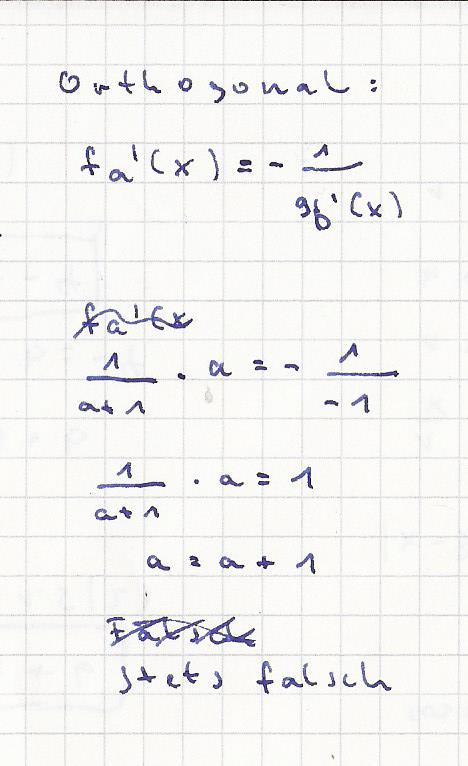 Orthogonal:
fa'(x) = - 1/gb'(x)
fa'(x
1/a+1 · a = - 1/-1
1/a+1 · a = 1
a = a + 1
Falsch
stets falsch